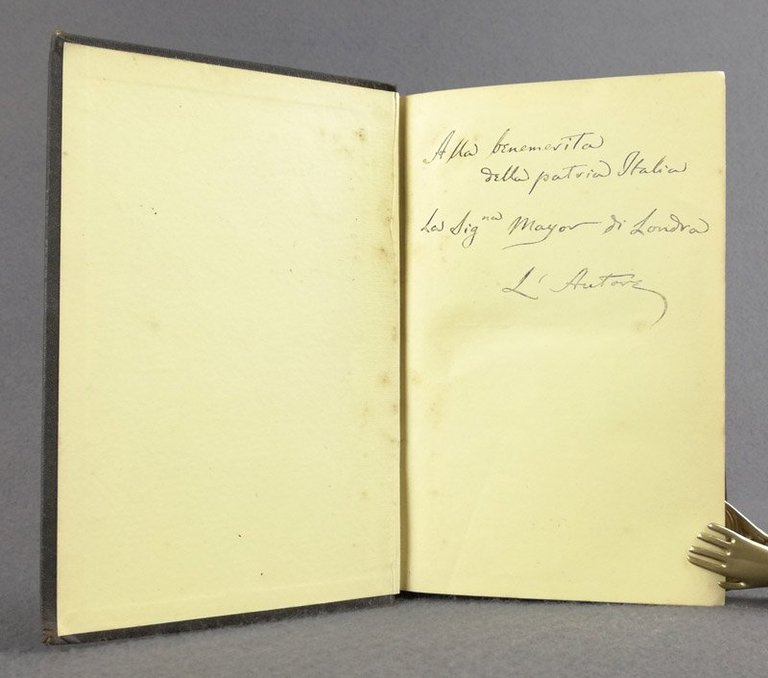 Alla benemerita
della patria Italia
La Sig.na Mayor di Londra
L'Autore